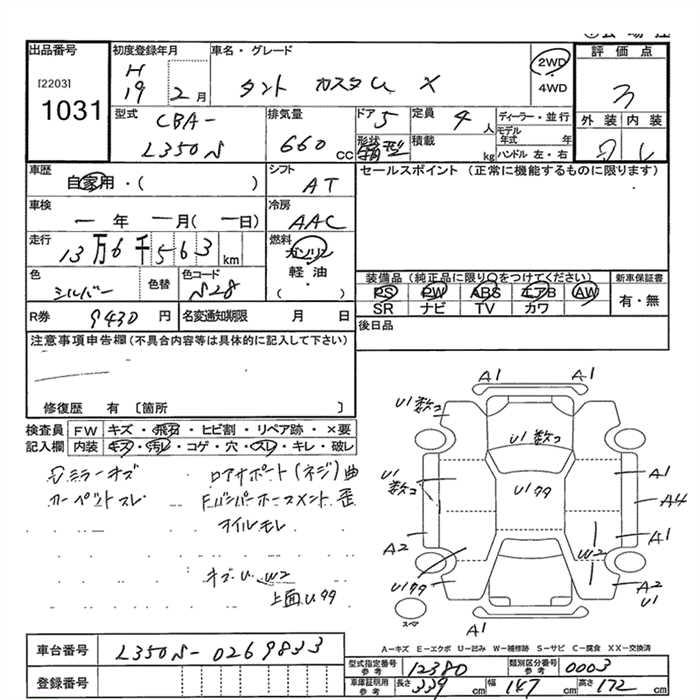 出品番号
[2203]
1031
初度登録年月
H
19 2 月
車名・グレード
タント カスタム X
2WD
4WD
評価点
3
型式
CBA-
L350S
排気量
660 cc
ドア 5
定員 4 人
形状 箱型
積載 kg
ディーラー・並行
モデル年式 年
ハンドル 左・右
外装 内装
車歴
自家用・( )
シフト
AT
セールスポイント (正常に機能するものに限ります)
車検
― 年 ― 月( ― 日)
冷房
AAC
走行
13万6千563 km
燃料
ガソリン
軽油・
( )
色
シルバー
色替
色コード
S28
装備品(純正品に限り○をつけてください)
PS PW ABS エアB AW
SR ナビ TV カワ
新車保証書
有・無
R券 9430 円
名変通知期限 月 日
後日品
注意事項申告欄(不具合内容等は具体的に記入して下さい)
修復歴 有 〔箇所 〕
検査員 FW キズ・飛石・ヒビ割・リペア跡・×要
記入欄 内装 キズ・汚レ・コゲ・穴・スレ・キレ・破レ
ミラーキズ
カーペットスレ
ロアサポート(ネジ)曲
Fバンパーホースメント歪
オイルモレ
キズU W2
上面U99
A1 A1
U1数コ
U1数コ
U1数コ
U199
A1
A4
A2
A1
W2
U199
A2
U1
A1
スペア
A-キズ E-エクボ U-凹み W-補修跡 S-サビ C-腐食 XX-交換済
車台番号 L350S-0269833
登録番号
型式指定番号 参考 12380
類別区分番号 参考 0003
車庫証明用 参考 長さ 339 cm 幅 147 cm 高さ 172 cm